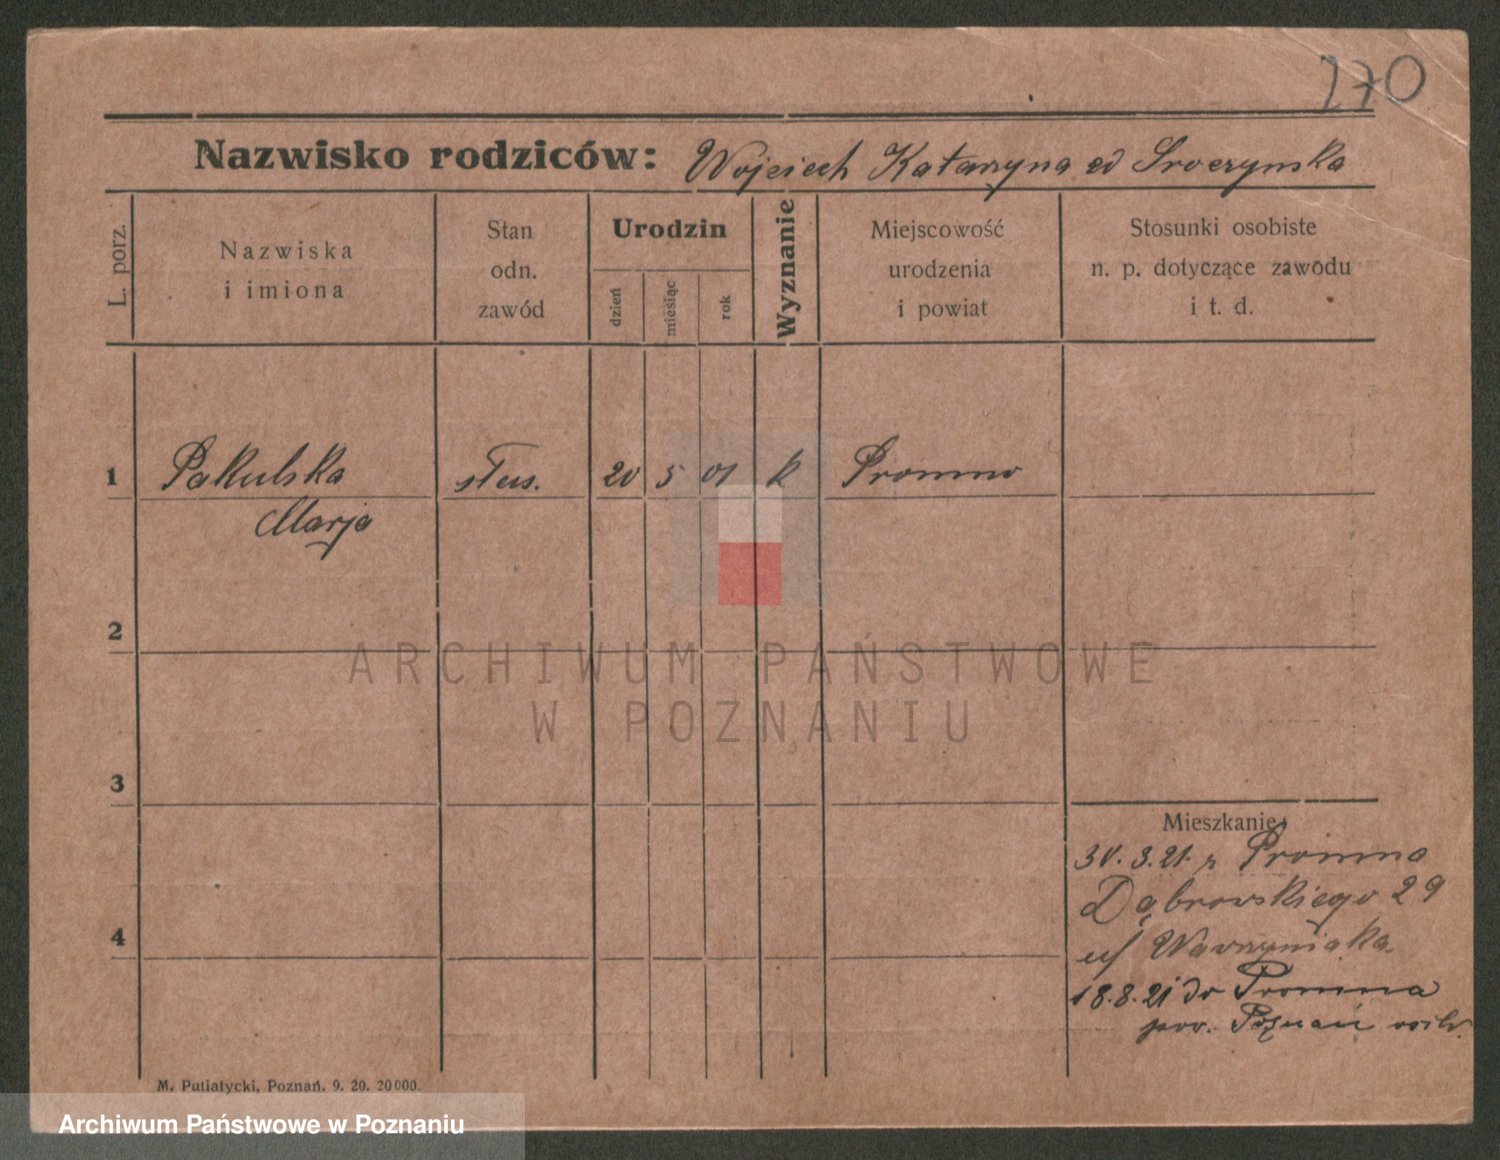 170
Nazwisko rodziców: Wojciech Katarzyna zd Sroczynska
L. porz.
Nazwiska
i imiona
Stan
odn.
zawód
Urodzin
dzień
miesiąc
rok
Wyznanie
Miejscowość
urodzenia
i powiat
Stosunki osobiste
n. p. dotyczące zawodu
i t. d.
1 Pakulska służ. 20 5 01 k Promno
Marja
2
ARCHIWUM PAŃSTWOWE
W POZNANIU
3
Mieszkanie:
30.3.21. z Promna
Dąbrowskiego 29
u/ Wawrzyniaka
4
18.8.21 do Promna
pow. Poznań
M. Putiatycki, Poznań. 9. 20. 20000.
Archiwum Państwowe w Poznaniu